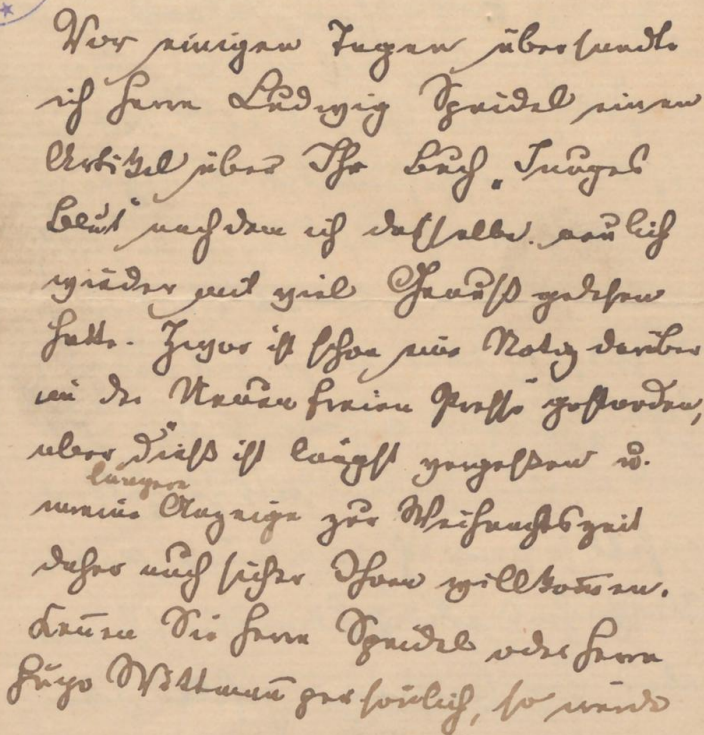 Vor einigen Tagen übersandte
ich Herrn Ludwig Speidel einen
Artikel über Ihr Buch „Junges
Blut" nachdem ich dasselbe neulich
wieder mit viel Genuß gelesen
hatte. Zwar ist schon eine Notiz darüber
in der Neuen freien Presse gestanden,
aber dieß ist längst vergessen u.
längere
meine Anzeige zur Weihnachtszeit
daher auch sicher Ihnen willkom̄en.
Ken̄en Sie Herrn Speidel oder Herrn
Hugo Wittman̄ persönlich, so würde